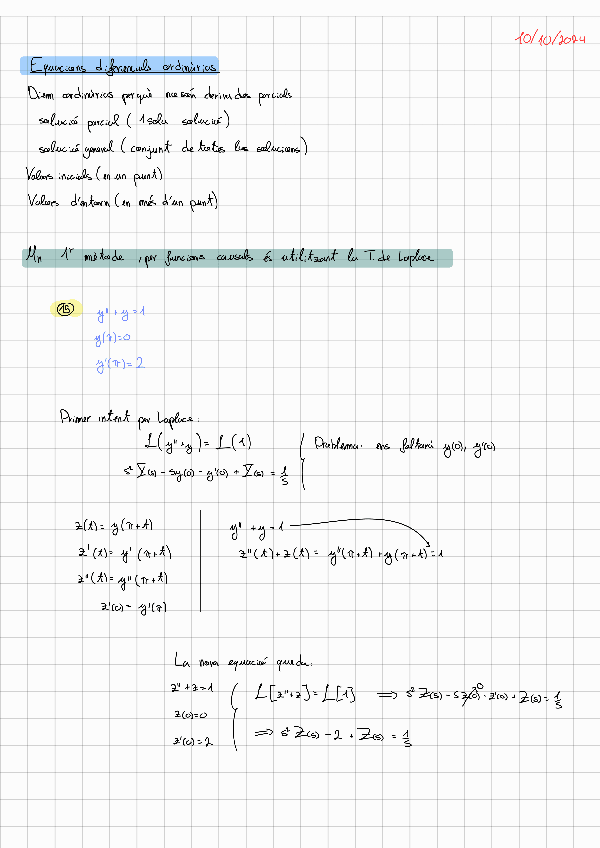 10/10/2024
Equacions diferencials ordinàries
Diem ordinàries perquè no són derivades parcials
solució parcial (1 sola solució)
solució general (conjunt de totes les solucions)
Valors inicials (en un punt)
Valors d'entorn (en més d'un punt)
Un 1r mètode, per funcions causals és utilitzant la T. de Laplace
15 y'' + y = 1
y(π)=0
y'(π)=2
Primer intent per Laplace:
L(y''+y) = L(1)
s² Y(s) - sy(0) - y'(0) + Y(s) = 1/s
Problema: ens faltarà y(0), y'(0)
z(t) = y(π+t)
z'(t) = y'(π+t)
z''(t) = y''(π+t)
z'(0) = y'(π)
y'' + y = 1
z''(t)+z(t) = y''(π+t) + y(π+t) = 1
La nova equació queda:
z''+z=1
z(0)=0
z'(0)=2
L[z''+z] = L[1] ⟹ s² Z(s) - s z(0) - z'(0) + Z(s) = 1/s
0
⟹ s² Z(s) - 2 + Z(s) = 1/s